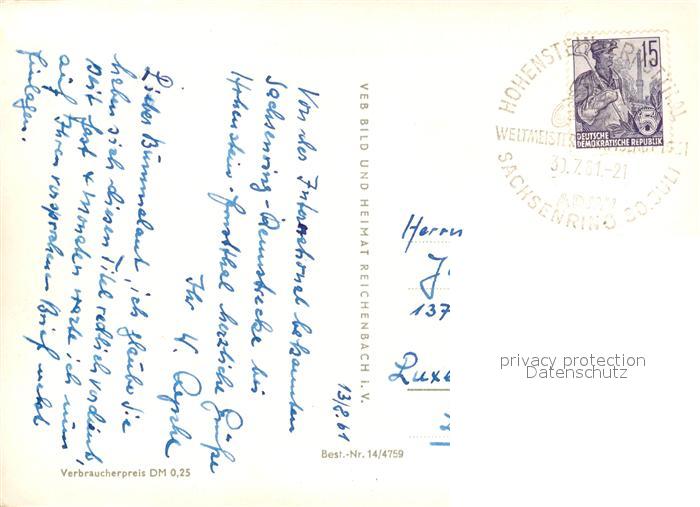 Von der International bekannten
Sachsenring-Rennstrecke bei
Hohenstein-Ernstthal herzliche Grüße
Ihr W.
Lieber Bummelant, ich glaube Sie
haben sich diesen Titel redlich verdient,
Seit fast 4 Monaten warte ich nun,
auf Ihren versprochenen Brief nebst
Einlagen.
13/8.61
VEB BILD UND HEIMAT REICHENBACH i. V.
Verbraucherpreis DM 0,25
Best.-Nr. 14/4759
15
5
DEUTSCHE
DEMOKRATISCHE REPUBLIK
HOHENSTEIN-ERNSTTHAL
30.7.61.-21
SACHSENRING 30. JULI
Herrn
J.
137
Luxe
privacy protection
Datenschutz